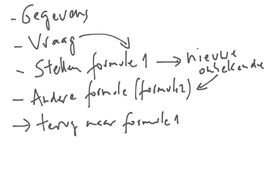 - Gegevens
- Vraag
- Stellen formule 1 → nieuwe onbekende
- Andere formule (formule2)
→ terug naar formule 1